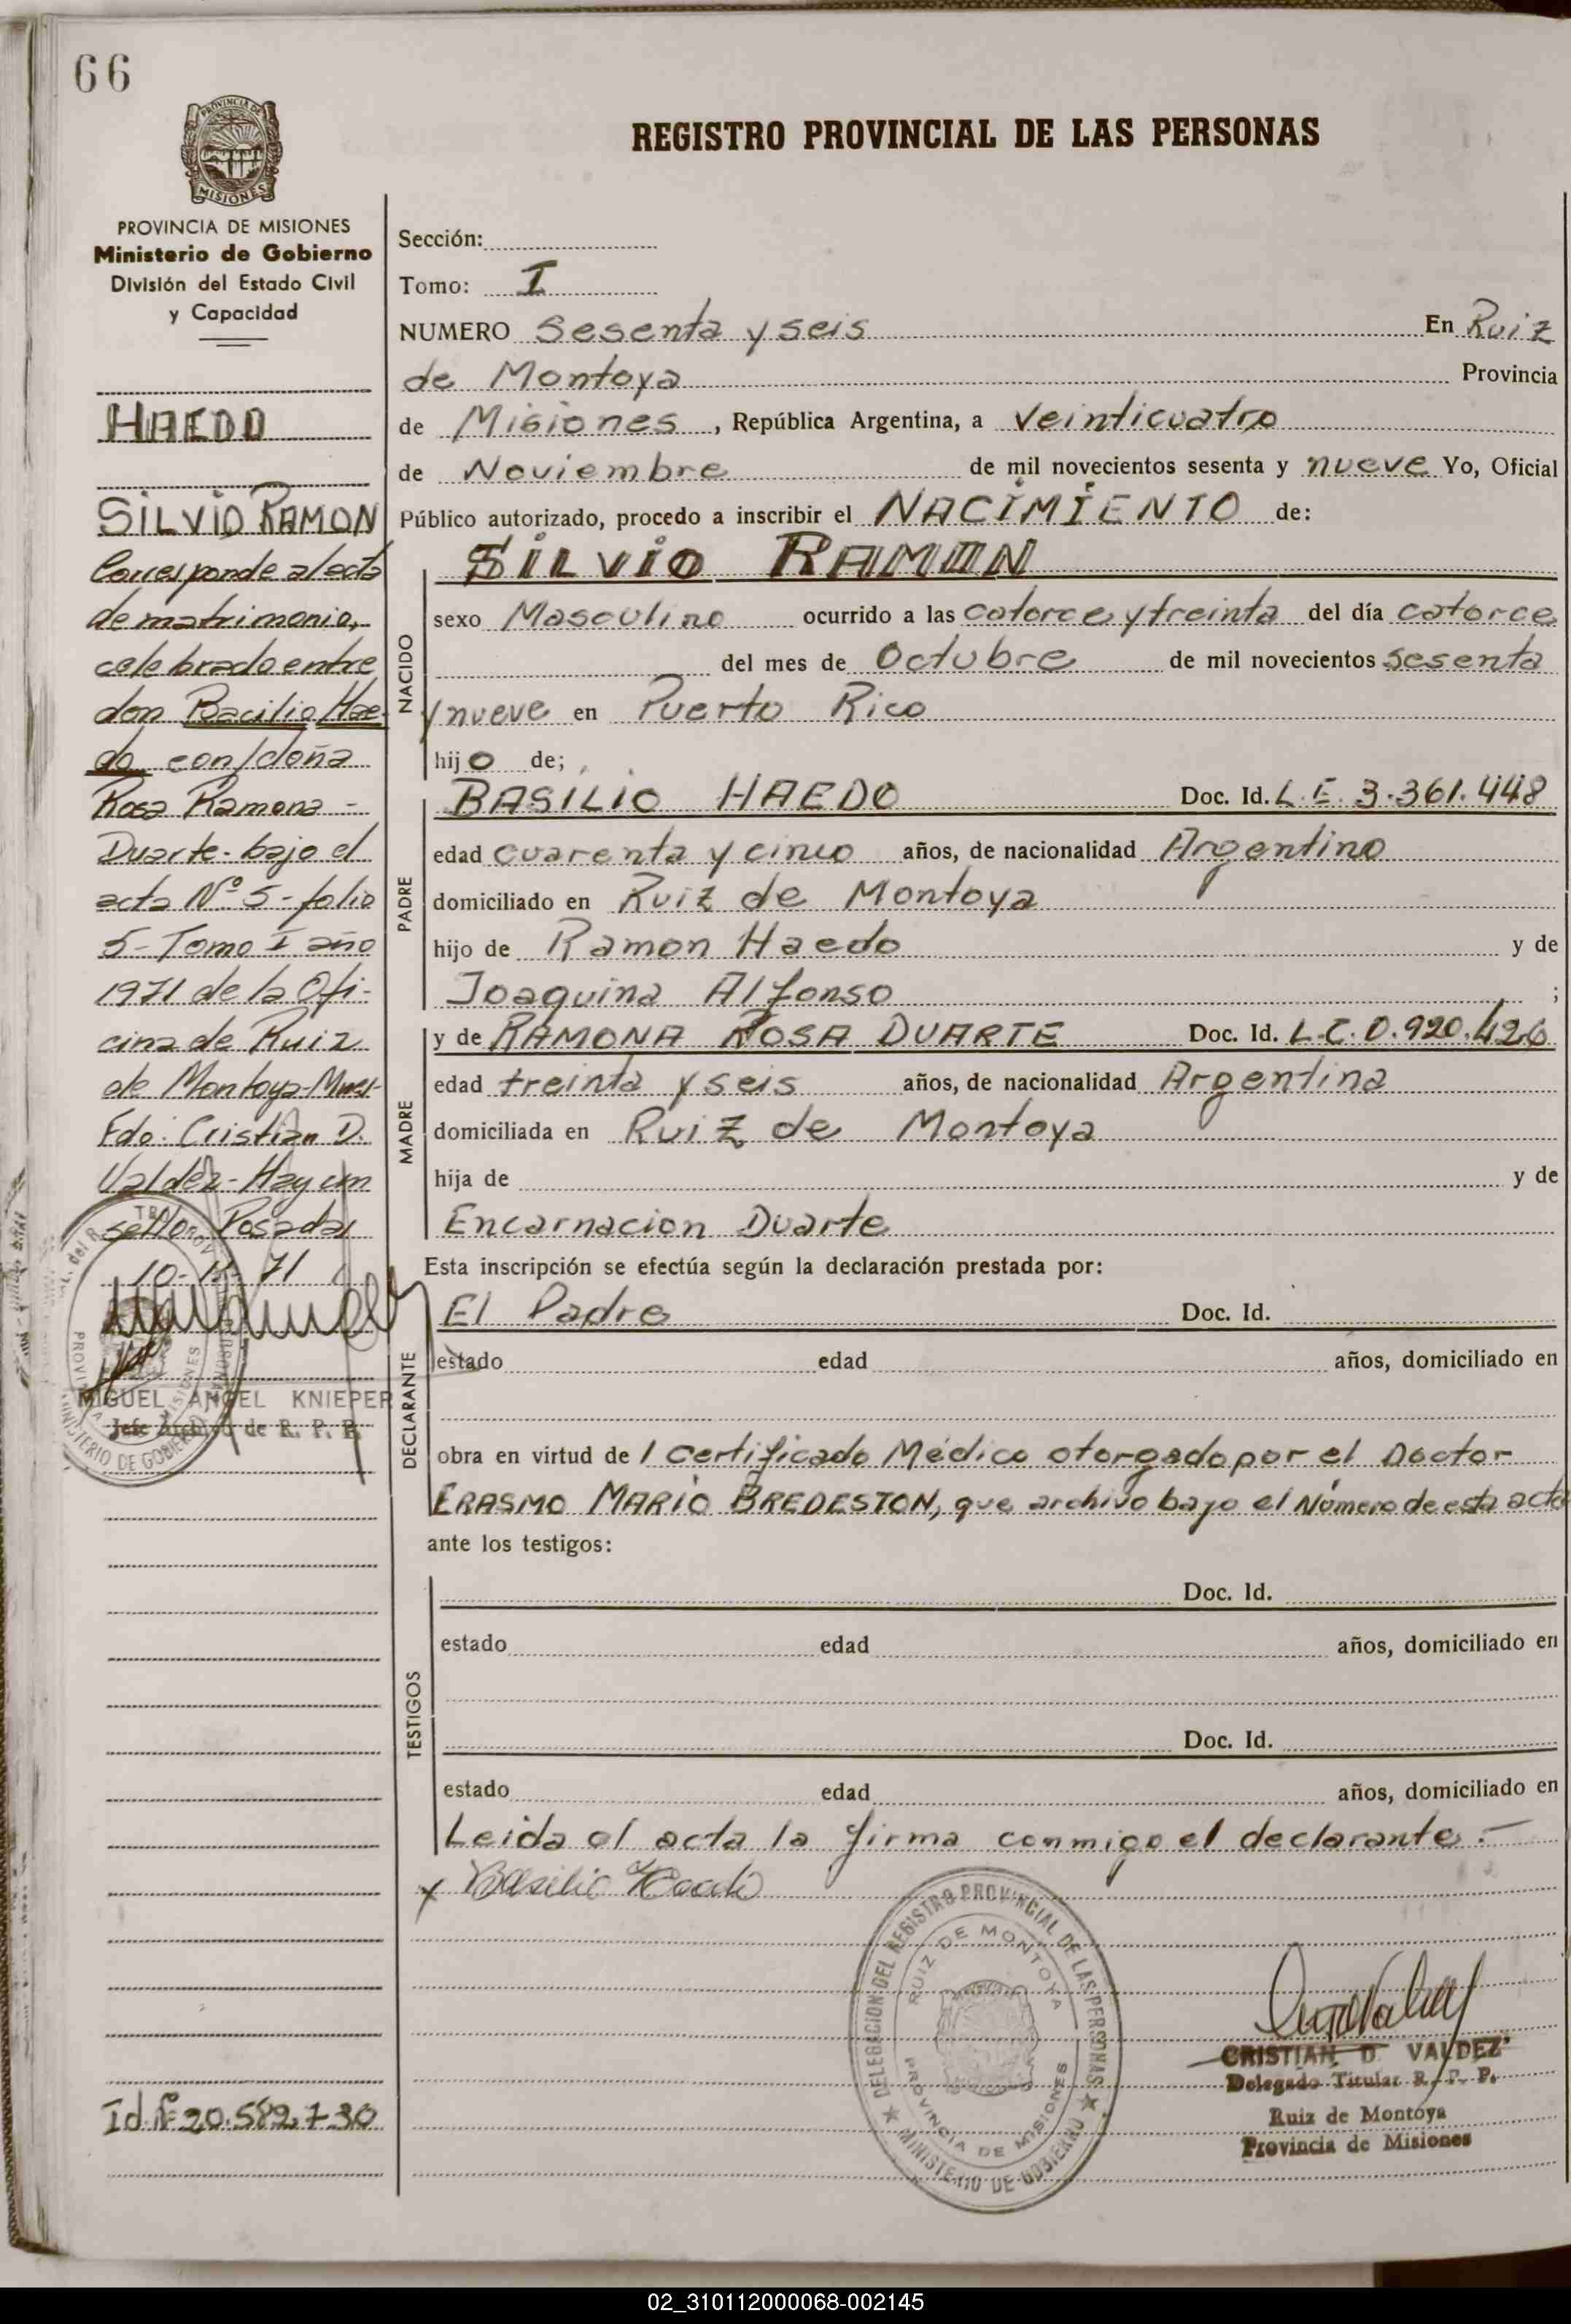 66
PROVINCIA DE
MISIONES
PROVINCIA DE MISIONES
Ministerio de Gobierno
División del Estado Civil
y Capacidad
HAEDO
SILVIO RAMON
Corresponde al acta
de matrimonio,
celebrado entre
don Bacilio Hae-
do con/doña
Rosa Ramona -
Duarte - bajo el
acta Nº 5 - folio
5 - Tomo I año
1971 de la Ofi-
cina de Ruiz
de Montoya-Mnes-
Fdo: Cristian D.
Valdez - Hay un
sello. Posadas
10- 71
MIGUEL ANGEL KNIEPER
Jefe Archivo de R. P. P.
Id. Nº 20.582.730
REGISTRO PROVINCIAL DE LAS PERSONAS
Sección:
Tomo: I
NUMERO Sesenta y seis En Ruiz
de Montoya Provincia
de Misiones, República Argentina, a Veinticuatro
de Noviembre de mil novecientos sesenta y nueve Yo, Oficial
Público autorizado, procedo a inscribir el NACIMIENTO de:
NACIDO
SILVIO RAMON
sexo Masculino ocurrido a las catorce y treinta del día catorce
del mes de Octubre de mil novecientos sesenta
y nueve en Puerto Rico
hijo de;
PADRE
BASILIO HAEDO Doc. Id. L.E. 3.361.448
edad cuarenta y cinco años, de nacionalidad Argentino
domiciliado en Ruiz de Montoya
hijo de Ramon Haedo y de
Joaquina Alfonso ;
MADRE
y de RAMONA ROSA DUARTE Doc. Id. L.C. 0.920.426
edad treinta y seis años, de nacionalidad Argentina
domiciliada en Ruiz de Montoya
hija de y de
Encarnacion Duarte
Esta inscripción se efectúa según la declaración prestada por:
DECLARANTE
El Padre Doc. Id.
estado edad años, domiciliado en
obra en virtud de 1 Certificado Médico otorgado por el Doctor
ERASMO MARIO BREDESTON, que archivo bajo el Número de esta acta
ante los testigos:
TESTIGOS
Doc. Id.
estado edad años, domiciliado en
Doc. Id.
estado edad años, domiciliado en
Leida el acta la firma conmigo el declarante.-
x Basilio Haedo
DELEGACION DEL REGISTRO PROVINCIAL DE LAS PERSONAS
MINISTERIO DE GOBIERNO
RUIZ DE MONTOYA
PROVINCIA DE MISIONES
CRISTIAN D. VALDEZ
Delegado Titular R. P. P.
Ruiz de Montoya
Provincia de Misiones
02_310112000068-002145